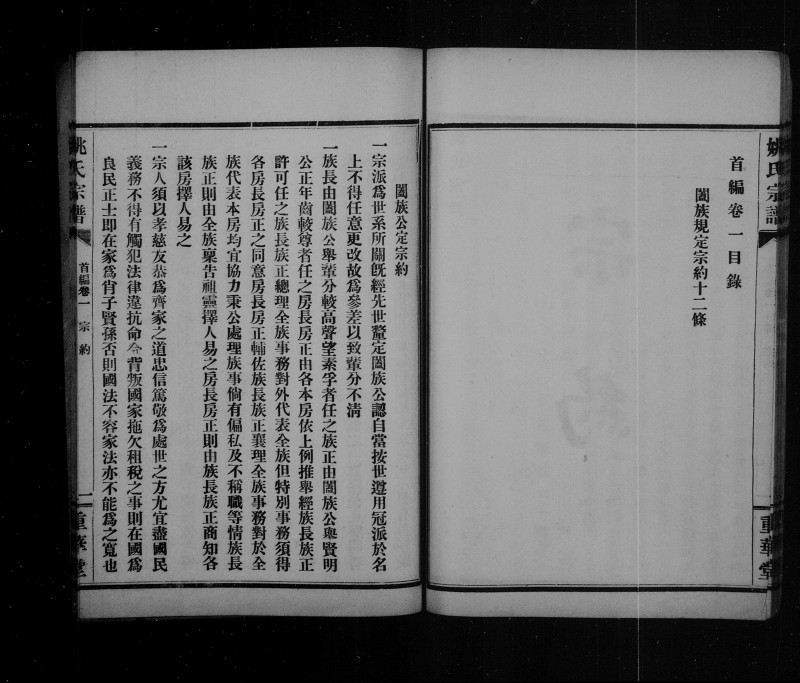 姚氏宗譜
重華堂
首編卷一目錄
闔族規定宗約十二條
闔族公定宗約
一宗派爲世系所關既經先世釐定闔族公認自當按世遵用冠派於名
上不得任意更改故爲參差以致輩分不清
一族長由闔族公舉輩分較高聲望素孚者任之族正由闔族公舉賢明
公正年齒較尊者任之房長房正由各本房依上例推舉經族長族正
許可任之族長族正總理全族事務對外代表全族但特別事務須得
各房長房正之同意房長房正輔佐族長族正襄理全族事務對於全
族代表本房均宜協力秉公處理族事倘有偏私及不稱職等情族長
族正則由全族稟告祖靈擇人易之房長房正則由族長族正商知各
該房擇人易之
一宗人須以孝慈友恭爲齊家之道忠信篤敬爲處世之方尤宜盡國民
義務不得有觸犯法律違抗命令背叛國家拖欠租稅之事則在國爲
良民正士即在家爲肖子賢孫否則國法不容家法亦不能爲之寬也
姚氏宗譜
首編卷一
宗約
一
重華堂